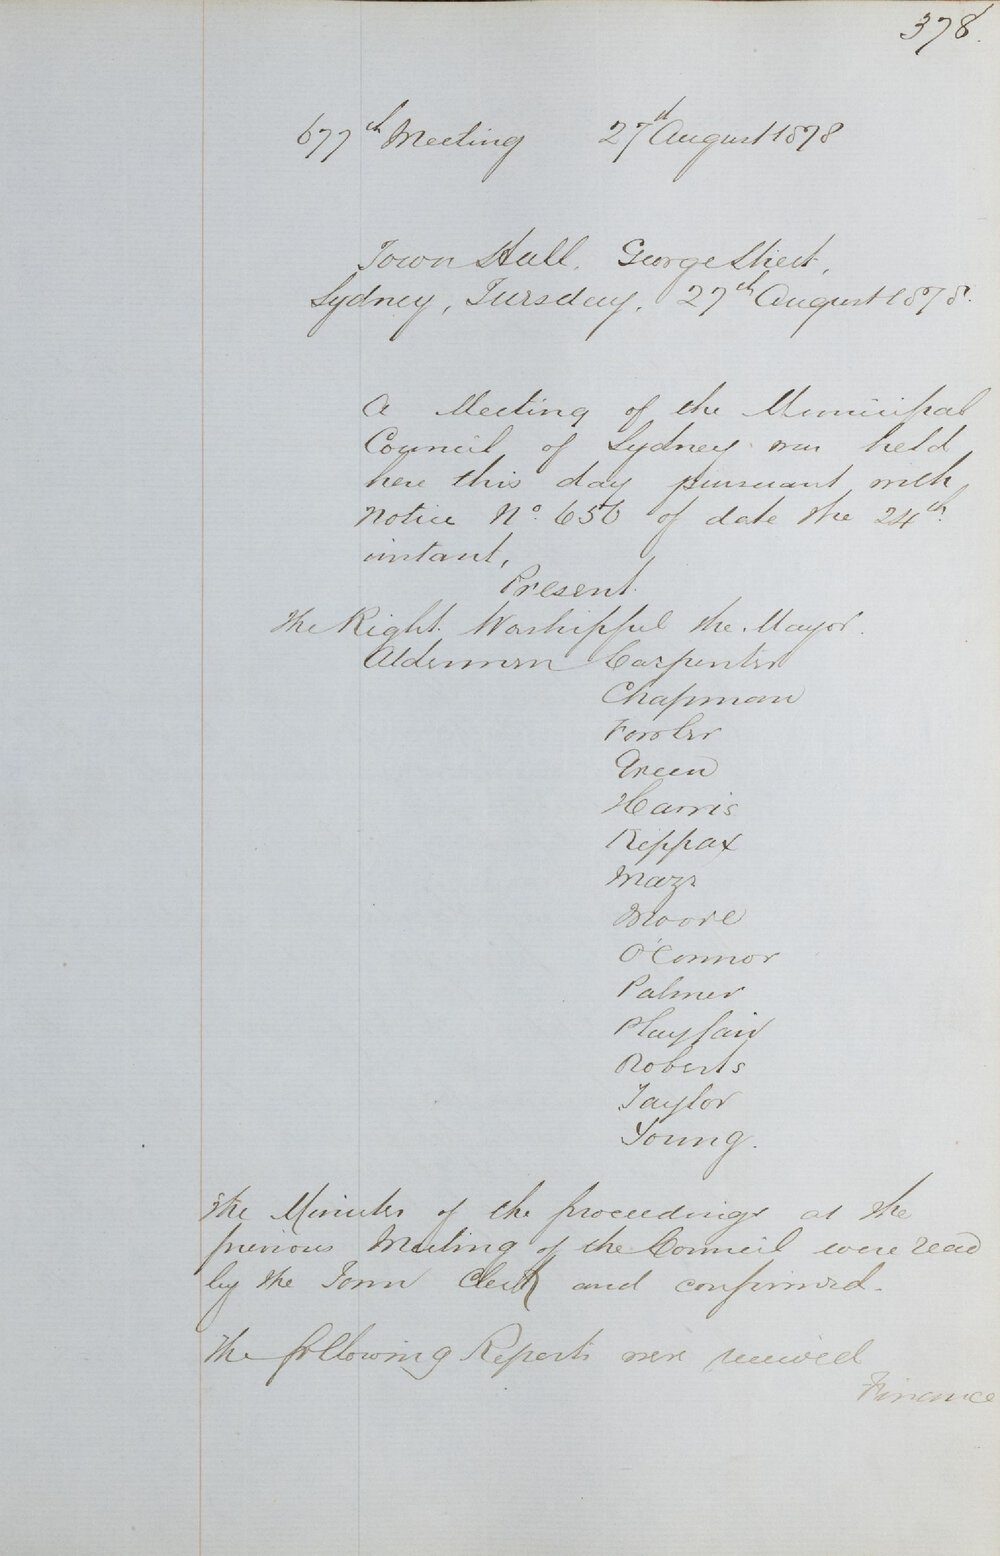 378.
677th Meeting 27th August 1878
Town Hall, George Street,
Sydney, Tuesday, 27th August 1878.
A Meeting of the Municipal
Council of Sydney was held
here this day pursuant with
notice No. 656 of date the 24th
instant,
Present
The Right Worshipful the Mayor.
Aldermen Carpenter
Chapman
Fowler
Green
Harris
Kippax
Maze
Moore
O'Connor
Palmer
Playfair
Roberts
Taylor
Young.
The Minutes of the proceedings at the
previous Meeting of the Council were read
by the Town Clerk and confirmed.
The following Reports were received
Finance